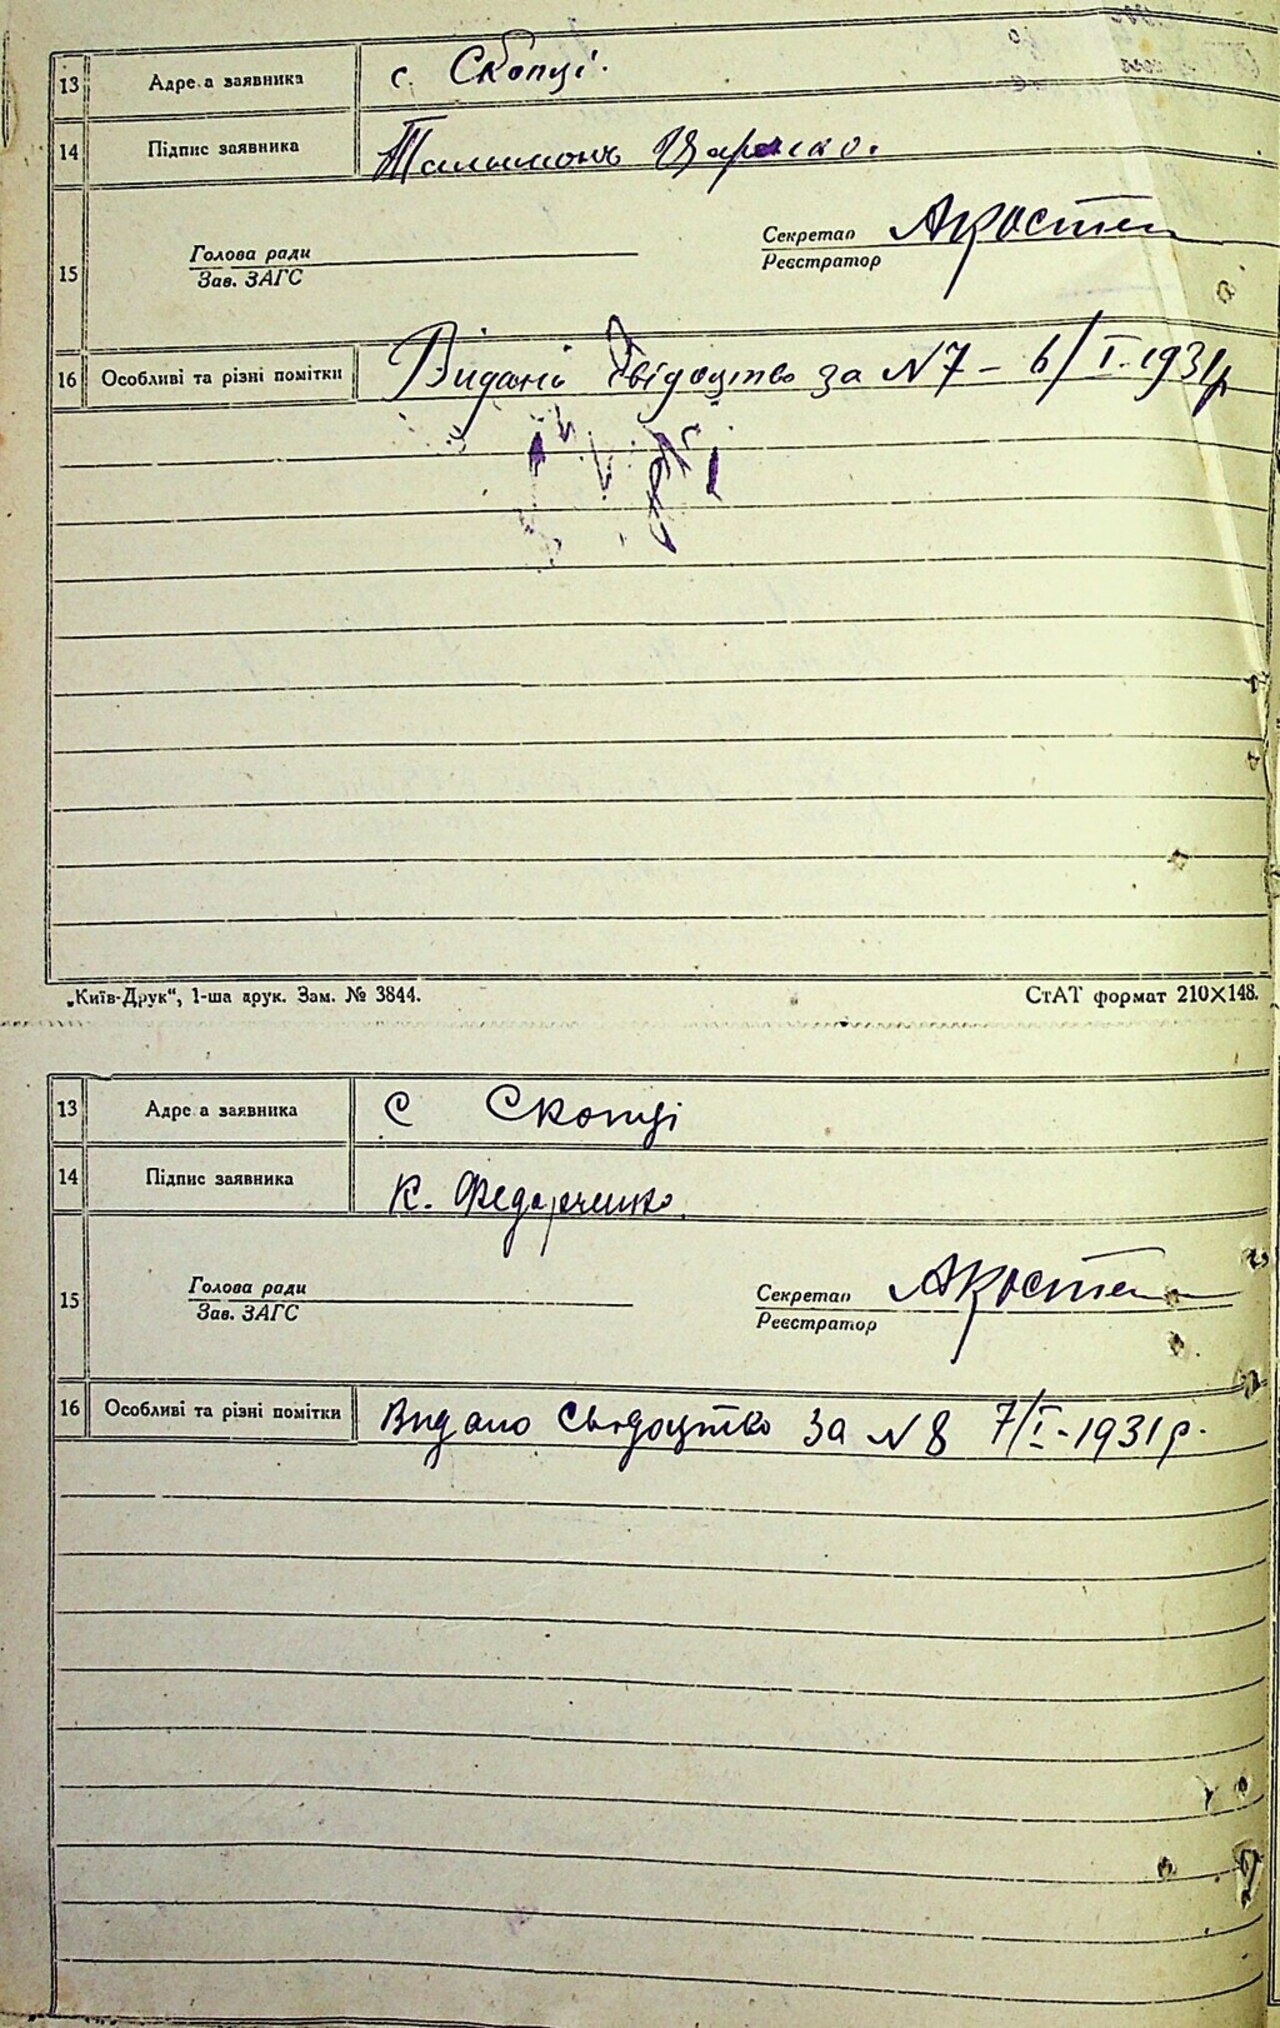 13 Адреса заявника с. Скопці.
14 Підпис заявника Талимонъ
15 Голова ради
Зав. ЗАГС
Секретар АКосте
Реєстратор
16 Особливі та різні помітки Видані Свідоцтво за N7 – 6/I. 1931р
„Київ-Друк“, 1-ша друк. Зам. № 3844. СтАТ формат 210X148.
13 Адреса заявника с Скопці
14 Підпис заявника К. Федорченко
15 Голова ради
Зав. ЗАГС
Секретар АКосте
Реєстратор
16 Особливі та різні помітки Видано Свідоцтво за N 8 7/I-1931р.